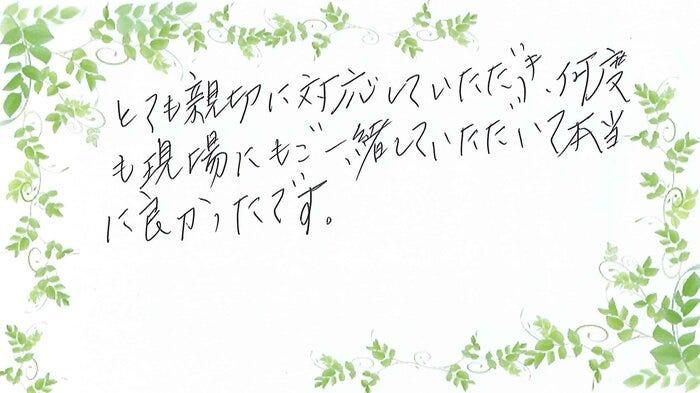 とても親切に対応していただき、何度
も現場にもご一緒していただいて本当
に良かったです。